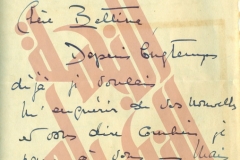 Chère Bettine
Depuis longtemps
déjà je voulais
m'enquérir de vos nouvelles
et vous dire combien je
à vous Mais